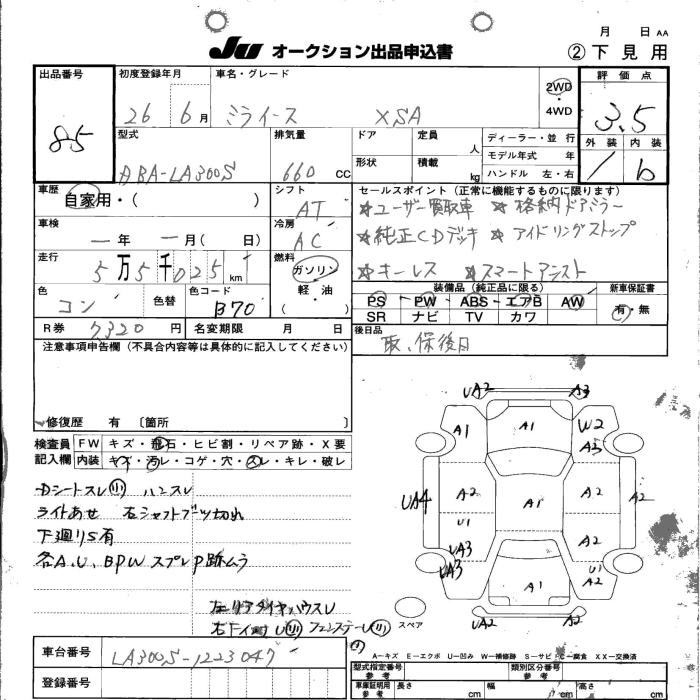 月 日 AA
JU オークション出品申込書 ②下見用
出品番号 初度登録年月 車名・グレード 評価点
85 26 6月 ミライース XSA 2WD・4WD 3.5
型式 排気量 ドア 定員 人 ディーラー・並行 外装 内装
ABA-LA300S 660 CC 形状 積載 kg モデル年式 年 ハンドル 左・右 / b
車歴 自家用・( ) シフト AT セールスポイント(正常に機能するものに限ります)
☆ユーザー買取車 ☆格納ドアミラー
車検 ー年 ー月( 日) 冷房 AC ☆純正CDデッキ ☆アイドリングストップ
走行 5万5千025km 燃料 ガソリン・軽・油 ( ) ☆キーレス ☆スマートアシスト
色 コン 色替 色コード B70 装備品(純正品に限る) 新車保証書
PS PW ABS エアB AW 有・無
SR ナビ TV カワ
R券 7320円 名変期限 月 日 後日品
取、保後日
注意事項申告欄(不具合内容等は具体的に記入してください)
修復歴 有 〔箇所
検査員記入欄 FW キズ・飛石・ヒビ割・リペア跡・X要
内装 キズ・汚レ・コゲ・穴・スレ・キレ・破レ
Dシートスレ小 ハンスレ
ライトあせ 右シャフトブーツ切れ
下廻りS有
各A.U.BPW スプレP跡ムラ
UA2 A3
A1 A1 W2
A3
UA4 A2 A1 A2 A2
U1
UA3 A2
UA3 U1
A1 A2
UA2 A2
スペア
車台番号 LA300S-1223047
登録番号
A−キズ E−エクボ U−凹み W−補修跡 S−サビ C−腐食 XX−交換済
型式指定番号 参考 類別区分番号 参考
車庫証明用 参考 長さ cm 幅 cm 高さ cm